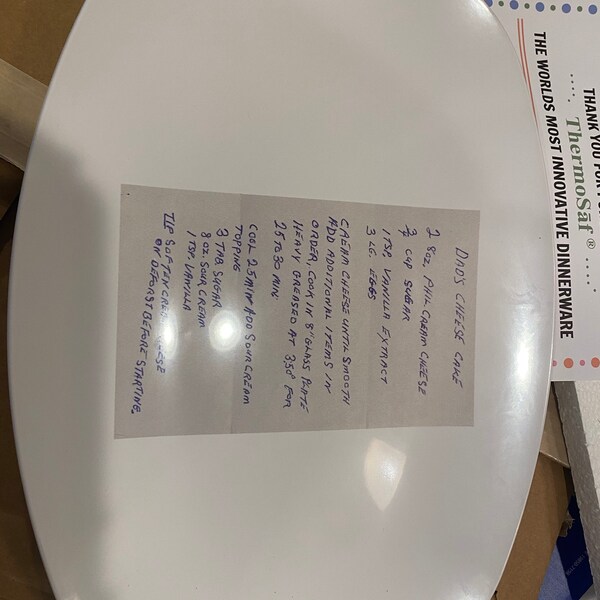 DAD'S CHEESE CAKE
2 8 OZ. PHIL CREAM CHEESE
3/4 CUP SUGAR
1 TSP. VANILLA EXTRACT
3 LG. EGGS
CREAM CHEESE UNTIL SMOOTH
ADD ADDITIONAL ITEMS IN
ORDER, COOK IN 8" GLASS PLATE
HEAVY GREASED AT 350° FOR
25 TO 30 MIN
COOL 25 MIN ADD SOUR CREAM
TOPPING
3 TAB SUGAR
8 OZ. SOUR CREAM
1 TSP. VANILLA
TIP SOFTEN CREAM CHEESE
ON DEFROST BEFORE STARTING.
THANK YOU FOR
ThermoSāf®
THE WORLDS MOST INNOVATIVE DINNERWARE